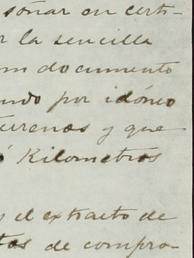 soñar en certi-
r la sencilla
un documento
ndo por idóneo
turenas y que
ó Kilometros
s el extracto de
tas de compro-